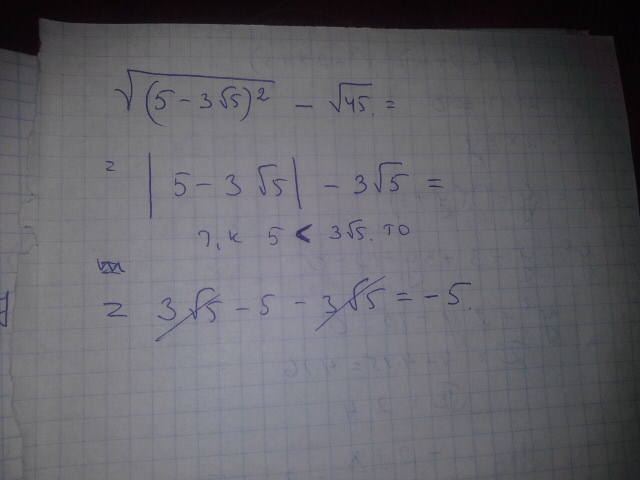 √(5-3√5)² - √45. =
= |5-3√5| - 3√5 =
т,к 5 < 3√5. то
= 3√5 - 5 - 3√5 = -5.